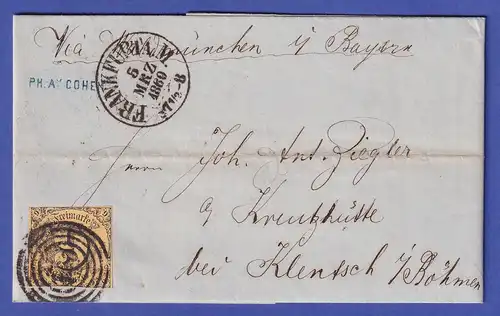 Via Waldmünchen i/ Bayern
FRANKFURT A. M.
5
MRZ
1860
7½-8
PH. AY COHE
Herrn Joh. Ant. Ziegler
a/ Kreuzhütte
bei Klentsch i/ Böhmen
Freimarke